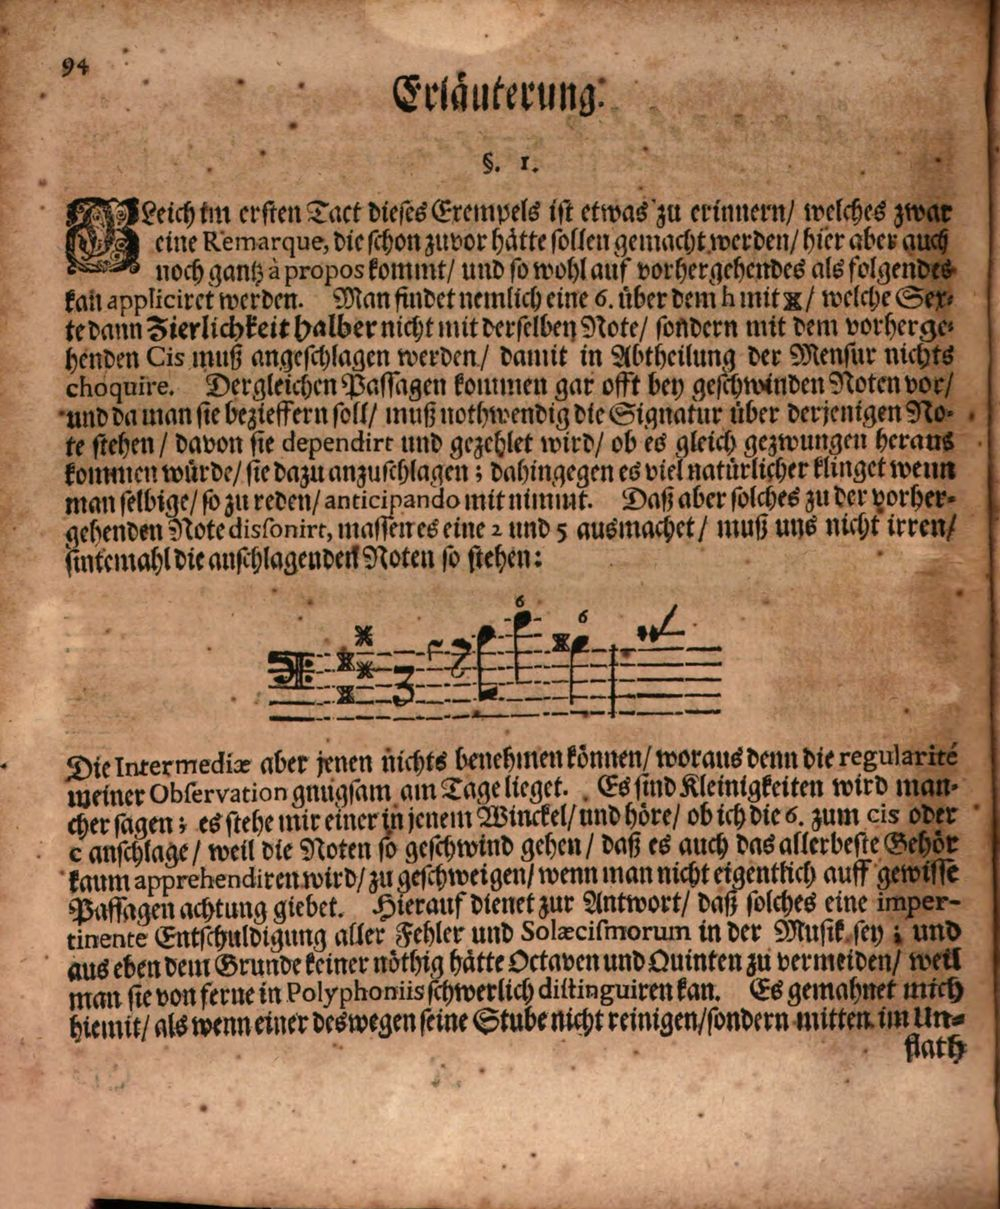 94
Erläuterung.
§. 1.
GLeich im ersten Tact dieses Exempels ist etwas zu erinnern/ welches zwar
eine Remarque, die schon zuvor hätte sollen gemacht werden/ hier aber auch
noch gantz à propos kommt/ und so wohl auf vorhergehendes als folgendes
kañ appliciret werden. Man findet nemlich eine 6. über dem h mit ⁤x/ welche Sex-
te dann Zierlichkeit halber nicht mit derselben Note/ sondern mit dem vorherge-
henden Cis muß angeschlagen werden/ damit in Abtheilung der Mensur nichts
choquire. Dergleichen Passagen kommen gar offt bey geschwinden Noten vor/
und da man sie bezieffern soll/ muß nothwendig die Signatur über derjenigen No-
te stehen/ davon sie dependirt und gezehlet wird/ ob es gleich gezwungen heraus
kommen würde/ sie dazu anzuschlagen; dahingegen es viel natürlicher klinget wenn
man selbige/ so zu reden/ anticipando mit nimmt. Daß aber solches zu der vorher-
gehenden Note dissonirt, massen es eine 2 und 5 ausmachet/ muß uns nicht irren/
sintemahl die anschlagenden Noten so stehen:
3 6 6
Die Intermediæ aber jenen nichts benehmen können/ woraus denn die regularité
meiner Observation gnugsam am Tage lieget. Es sind Kleinigkeiten wird man-
cher sagen; es stehe mir einer in jenem Winckel/ und höre/ ob ich die 6. zum cis oder
c anschlage/ weil die Noten so geschwind gehen/ daß es auch das allerbeste Gehör
kaum apprehendiren wird/ zu geschweigen/ wenn man nicht eigentlich auff gewisse
Passagen achtung giebet. Hierauf dienet zur Antwort/ daß solches eine imper-
tinente Entschuldigung aller Fehler und Solæcismorum in der Musik sey; und
aus eben dem Grunde keiner nöthig hätte Octaven und Quinten zu vermeiden/ weil
man sie von ferne in Polyphoniis schwerlich distinguiren kan. Es gemahnet mich
hiemit/ als wenn einer deswegen seine Stube nicht reinigen/ sondern mitten im Un-
flath